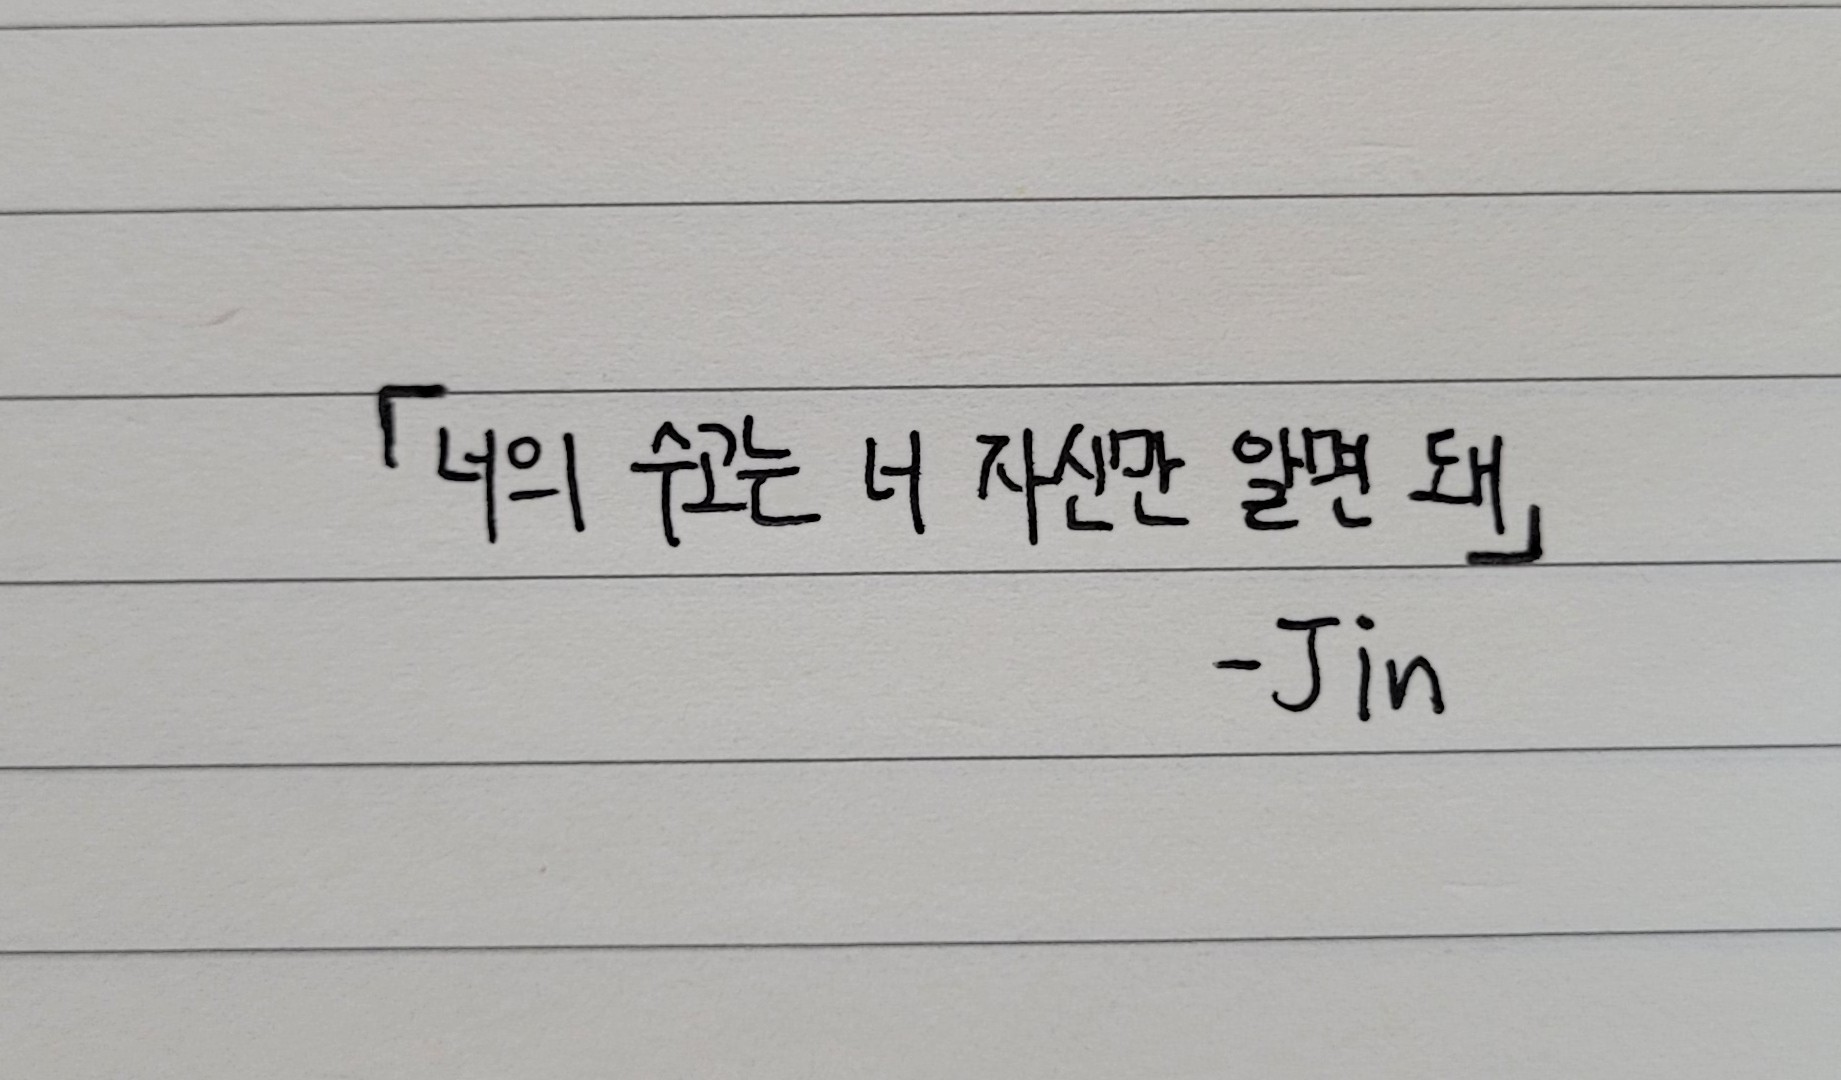 「너의 수고는 너 자신만 알면 돼」
-Jin